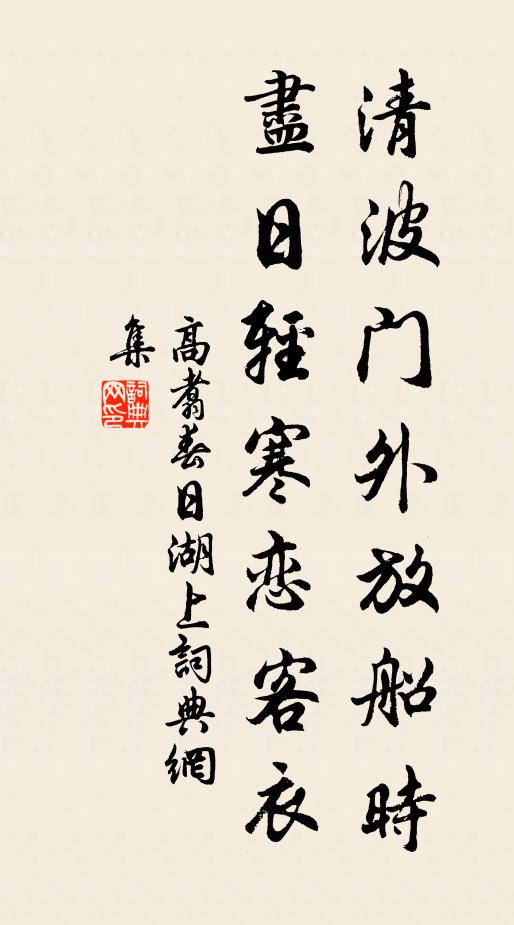 清波门外放船時
盡日輕寒恋客衣
高翥春日湖上詞典網
集
詞典
网印